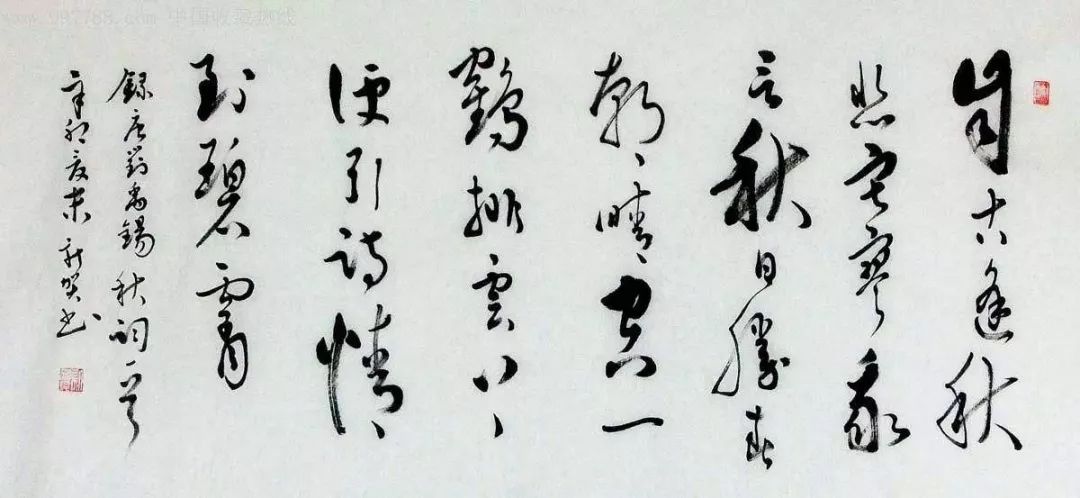 www.997788.com 中国收藏热线
自古逢秋
悲寂寥我
言秋日勝春
朝晴空一
鶴排雲上
便引詩情
到碧霄
錄唐劉禹錫秋詞一首
辛卯夏末 书